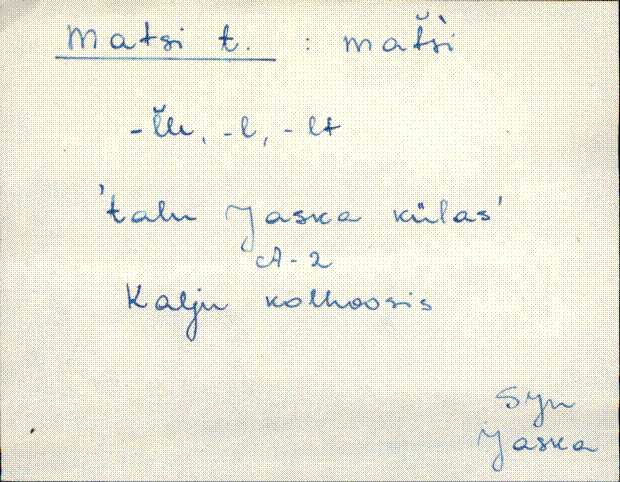 Matsi t. : mat̆s̀i
-l̆le, -l, -lt
'talu Jaska külas'
A-2
Kalju kolhoosis
Syn
Jaska